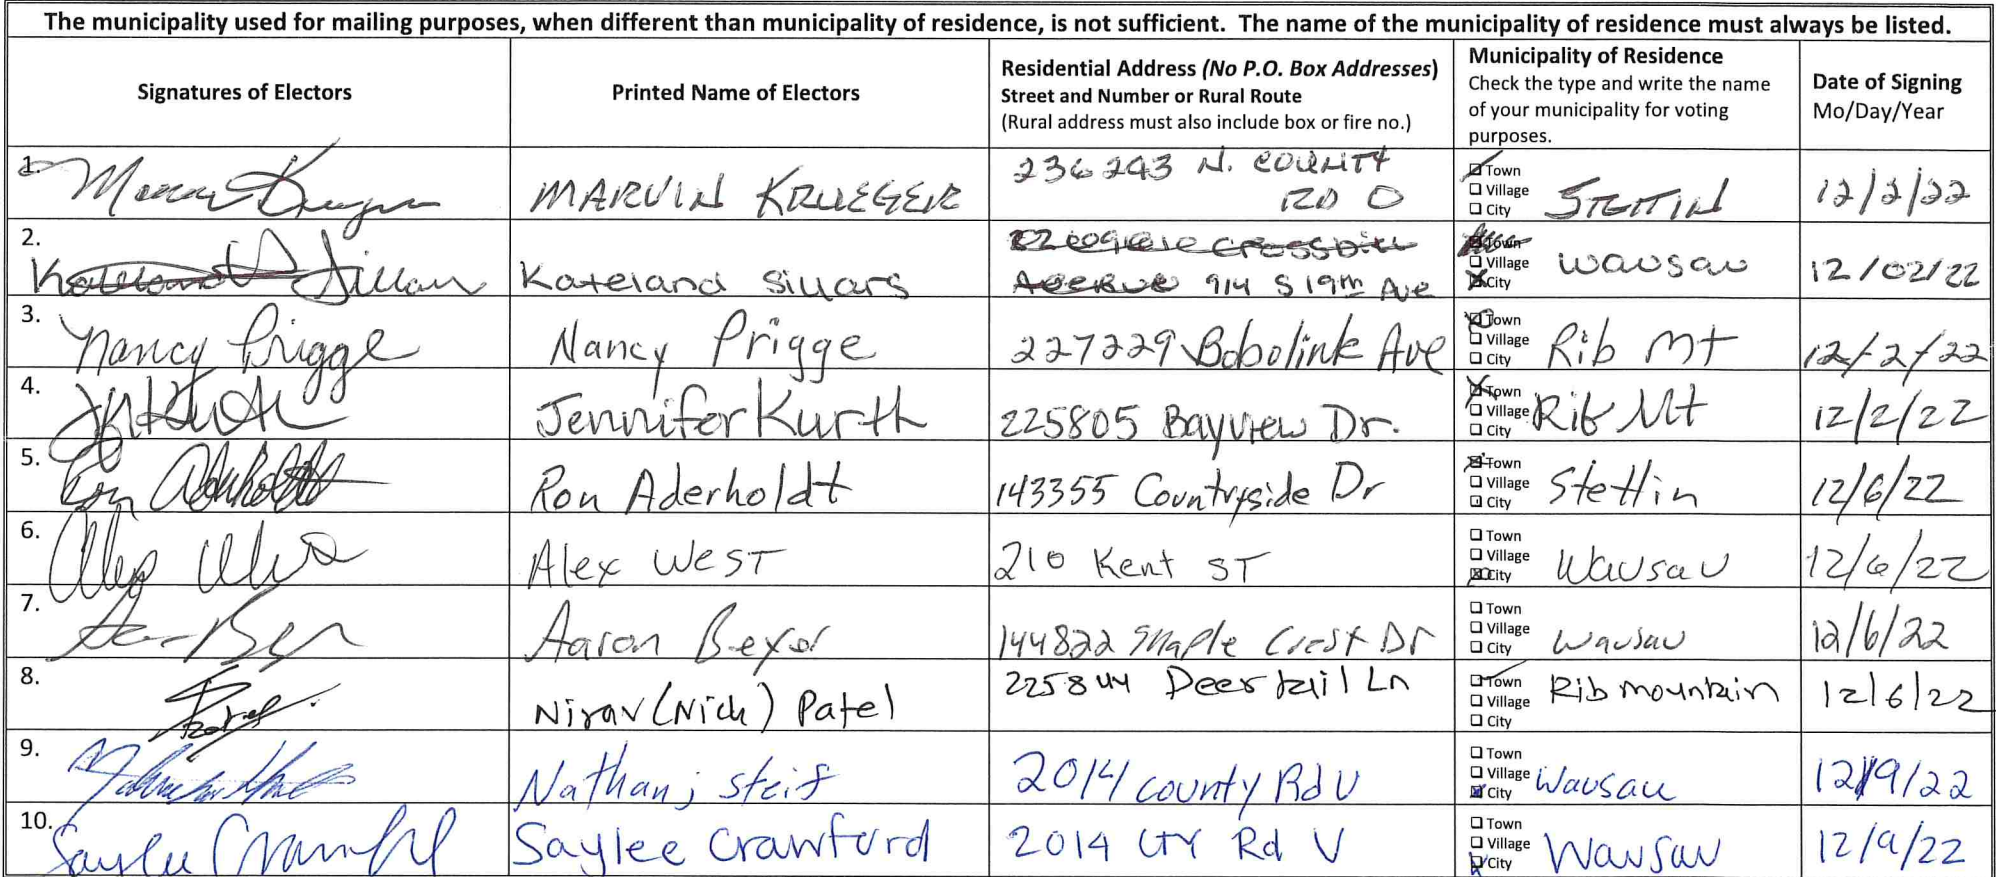 The municipality used for mailing purposes, when different than municipality of residence, is not sufficient. The name of the municipality of residence must always be listed.
Signatures of Electors
Printed Name of Electors
Residential Address (No P.O. Box Addresses)
Street and Number or Rural Route
(Rural address must also include box or fire no.)
Municipality of Residence
Check the type and write the name
of your municipality for voting
purposes.
Date of Signing
Mo/Day/Year
1.
MARVIN KRUEGER
236243 N. COUNTY
RD O
Town
Village
City
STETTIN
12/2/22
2.
Kateland Sillars
914 S 19th Ave
Town
Village
City
Wausau
12/02/22
3.
Nancy Prigge
Nancy Prigge
227229 Bobolink Ave
Town
Village
City
Rib Mt
12/2/22
4.
Jennifer Kurth
225805 Bayview Dr.
Town
Village
City
Rib Mt
12/2/22
5.
Ron Aderholdt
Ron Aderholdt
143355 Countryside Dr
Town
Village
City
Stettin
12/6/22
6.
Alex West
210 Kent ST
Town
Village
City
Wausau
12/6/22
7.
Aaron Beyer
144822 Maple Crest Dr
Town
Village
City
Wausau
12/6/22
8.
Nirav (Nick) Patel
225844 Deertail Ln
Town
Village
City
Rib mountain
12/6/22
9.
Nathan j
2014 county Rd U
Town
Village
City
Wausau
12/9/22
10.
Saylee Crawford
Saylee Crawford
2014 CTY Rd U
Town
Village
City
Wausau
12/9/22